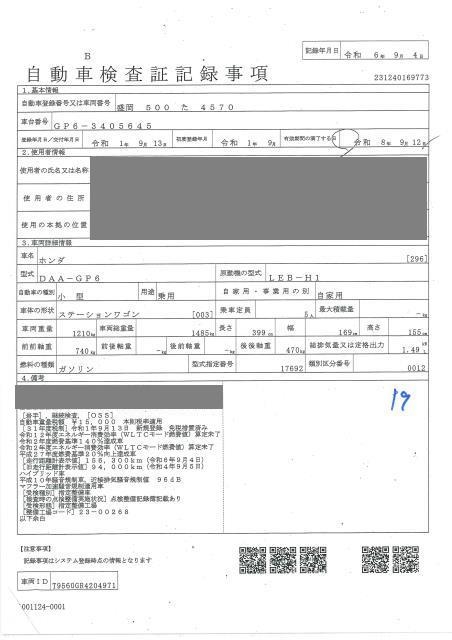 記録年月日 令和 6年 9月 4日
B
自動車検査証記録事項
231240169773
1.基本情報
自動車登録番号又は車両番号 盛岡 500 た 4570
車台番号 GP6-3405645
登録年月日/交付年月日 令和 1年 9月 13日 初度登録年月 令和 1年 9月 有効期間の満了する日 令和 8年 9月 12日
2.使用者情報
使用者の氏名又は名称
使用者の住所
使用の本拠の位置
3.車両詳細情報
車名 ホンダ [296]
型式 DAA-GP6 原動機の型式 LEB-H1
自動車の種別 小型 用途 乗用 自家用・事業用の別 自家用
車体の形状 ステーションワゴン [003] 乗車定員 5人 最大積載量 -kg
車両重量 1210kg 車両総重量 1485kg 長さ 399cm 幅 169cm 高さ 155cm
前前軸重 740kg 前後軸重 -kg 後前軸重 -kg 後後軸重 470kg 総排気量又は定格出力 1.49
燃料の種類 ガソリン 型式指定番号 17692 類別区分番号 0012
4.備考
19
[岩手], 継続検査, [OSS]
自動車重量税額 ¥15,000 本則税率適用
[31年度税制] 令和1年9月13日 新規登録 免税措置済み
令和12年度エネルギー消費効率(WLTCモード燃費値)算定未了
令和2年度燃費基準140%達成車
令和2年度エネルギー消費効率(WLTCモード燃費値)算定未了
平成27年度燃費基準20%向上達成車
[走行距離計表示値] 156,300km (令和6年9月4日)
[旧走行距離計表示値] 94,000km (令和4年9月5日)
ハイブリッド車
平成10年騒音規制車, 近接排気騒音規制値 96dB
マフラー加速騒音規制適用車
[受検種別] 指定整備車
[検査時の点検整備実施状況] 点検整備記録簿記載あり
[受検形態] 指定整備工場
[整備工場コード] 23-00268
以下余白
【注意事項】
記録事項はシステム登録時点の情報となります
車両ID 79560GR4204971
001124-0001